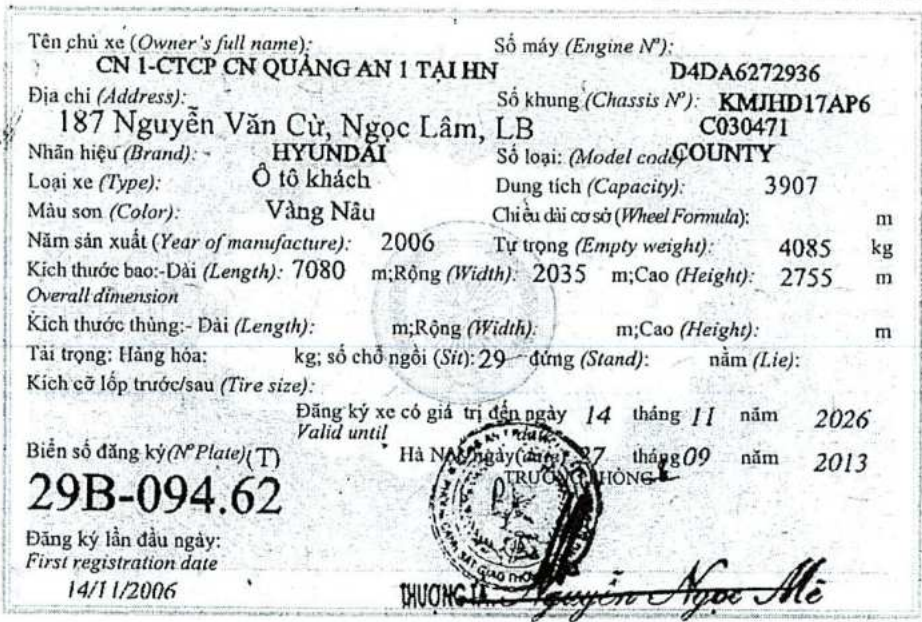 Tên chủ xe (Owner's full name): Số máy (Engine Nº):
CN 1-CTCP CN QUẢNG AN 1 TẠI HN D4DA6272936
Địa chỉ (Address): Số khung (Chassis Nº): KMJHD17AP6
187 Nguyễn Văn Cừ, Ngọc Lâm, LB C030471
Nhãn hiệu (Brand): HYUNDAI Số loại: (Model code) COUNTY
Loại xe (Type): Ô tô khách Dung tích (Capacity): 3907
Màu sơn (Color): Vàng Nâu Chiều dài cơ sở (Wheel Formula): m
Năm sản xuất (Year of manufacture): 2006 Tự trọng (Empty weight): 4085 kg
Kích thước bao:-Dài (Length): 7080 m;Rộng (Width): 2035 m;Cao (Height): 2755 m
Overall dimension
Kích thước thùng:- Dài (Length): m;Rộng (Width): m;Cao (Height): m
Tải trọng: Hàng hóa: kg; số chỗ ngồi (Sit): 29 đứng (Stand): nằm (Lie):
Kích cỡ lốp trước/sau (Tire size):
Đăng ký xe có giá trị đến ngày 14 tháng 11 năm 2026
Valid until
Biển số đăng ký(Nº Plate)(T) Hà Nội, ngày (date) 27 tháng 09 năm 2013
TRƯỞNG PHÒNG
29B-094.62
Đăng ký lần đầu ngày:
First registration date
14/11/2006 THƯỢNG TÁ. Nguyễn Ngọc Mê